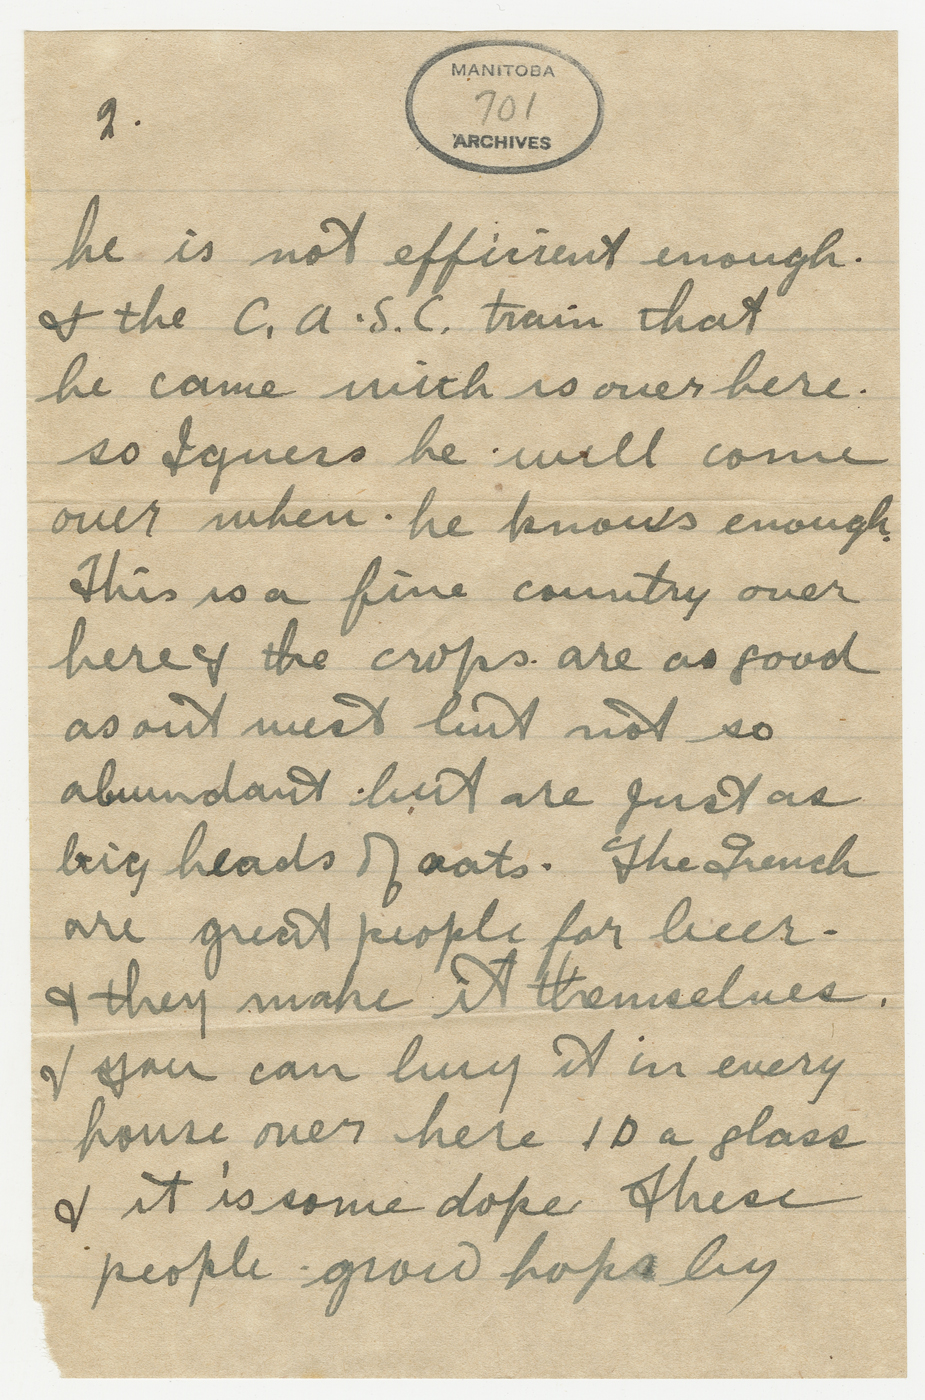 MANITOBA
701
ARCHIVES
2.
he is not efficient enough.
& the C.A.S.C. train that
he came with is over here.
so I guess he will come
over when he knows enough.
This is a fine country over
here & the crops are as good
as out west but not so
abundant but are just as
big heads of oats. The French
are great people for beer.
& they make it themselves.
& you can buy it in every
house over here 1D a glass
& it is some dope These
people grow hops by